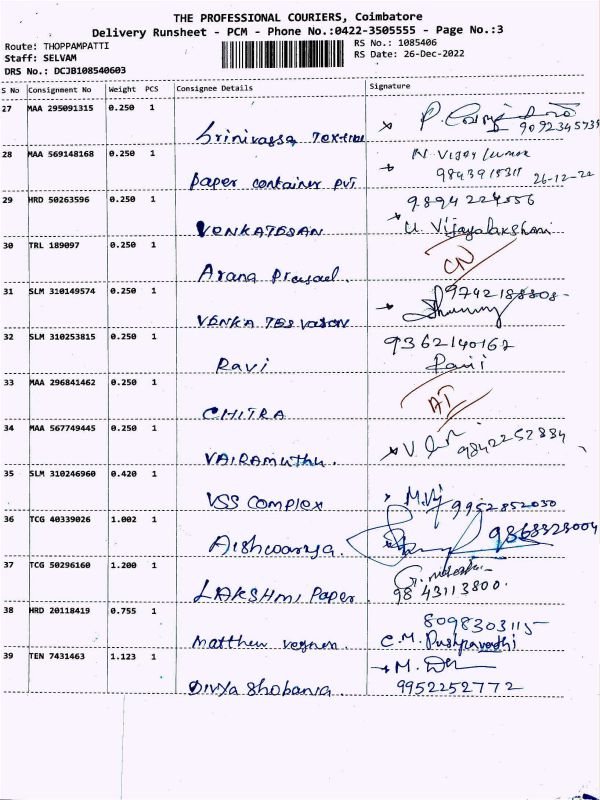 THE PROFESSIONAL COURIERS, Coimbatore
Delivery Runsheet - PCM - Phone No.:0422-3505555 - Page No.:3
Route: THOPPAMPATTI
RS No.: 1085406
Staff: SELVAM
RS Date: 26-Dec-2022
DRS No.: DCJB108540603
S No Consignment No Weight PCS Consignee Details Signature
27 MAA 295091315 0.250 1
Srinivassa Textiles
28 MAA 569148168 0.250 1 N Vijay Kumar
Paper container PVT 26-12-22
29 HRD 50263596 0.250 1
VENKATESAN U. Vijayalakshmi
30 TRL 189097 0.250 1 CN
Arana Prasad.
31 SLM 310149574 0.250 1
VENKATESVARAN
32 SLM 310253815 0.250 1 9362140162
Ravi Ravi
33 MAA 296841462 0.250 1 AT
CHITRA
34 MAA 567749445 0.250 1 9842252884
VAIRAMUTHU.
35 SLM 310246960 0.420 1
VSS Complex 9952852050
36 TCG 40339026 1.002 1
Aishwarya. 9868328004
37 TCG 50296160 1.200 1
LAKSHMI Paper 9843113800.
38 HRD 20118419 0.755 1 8098303115
Matthew C.M. Pushpavathi
39 TEN 7431463 1.123 1
Divya Shobana. 9952252772